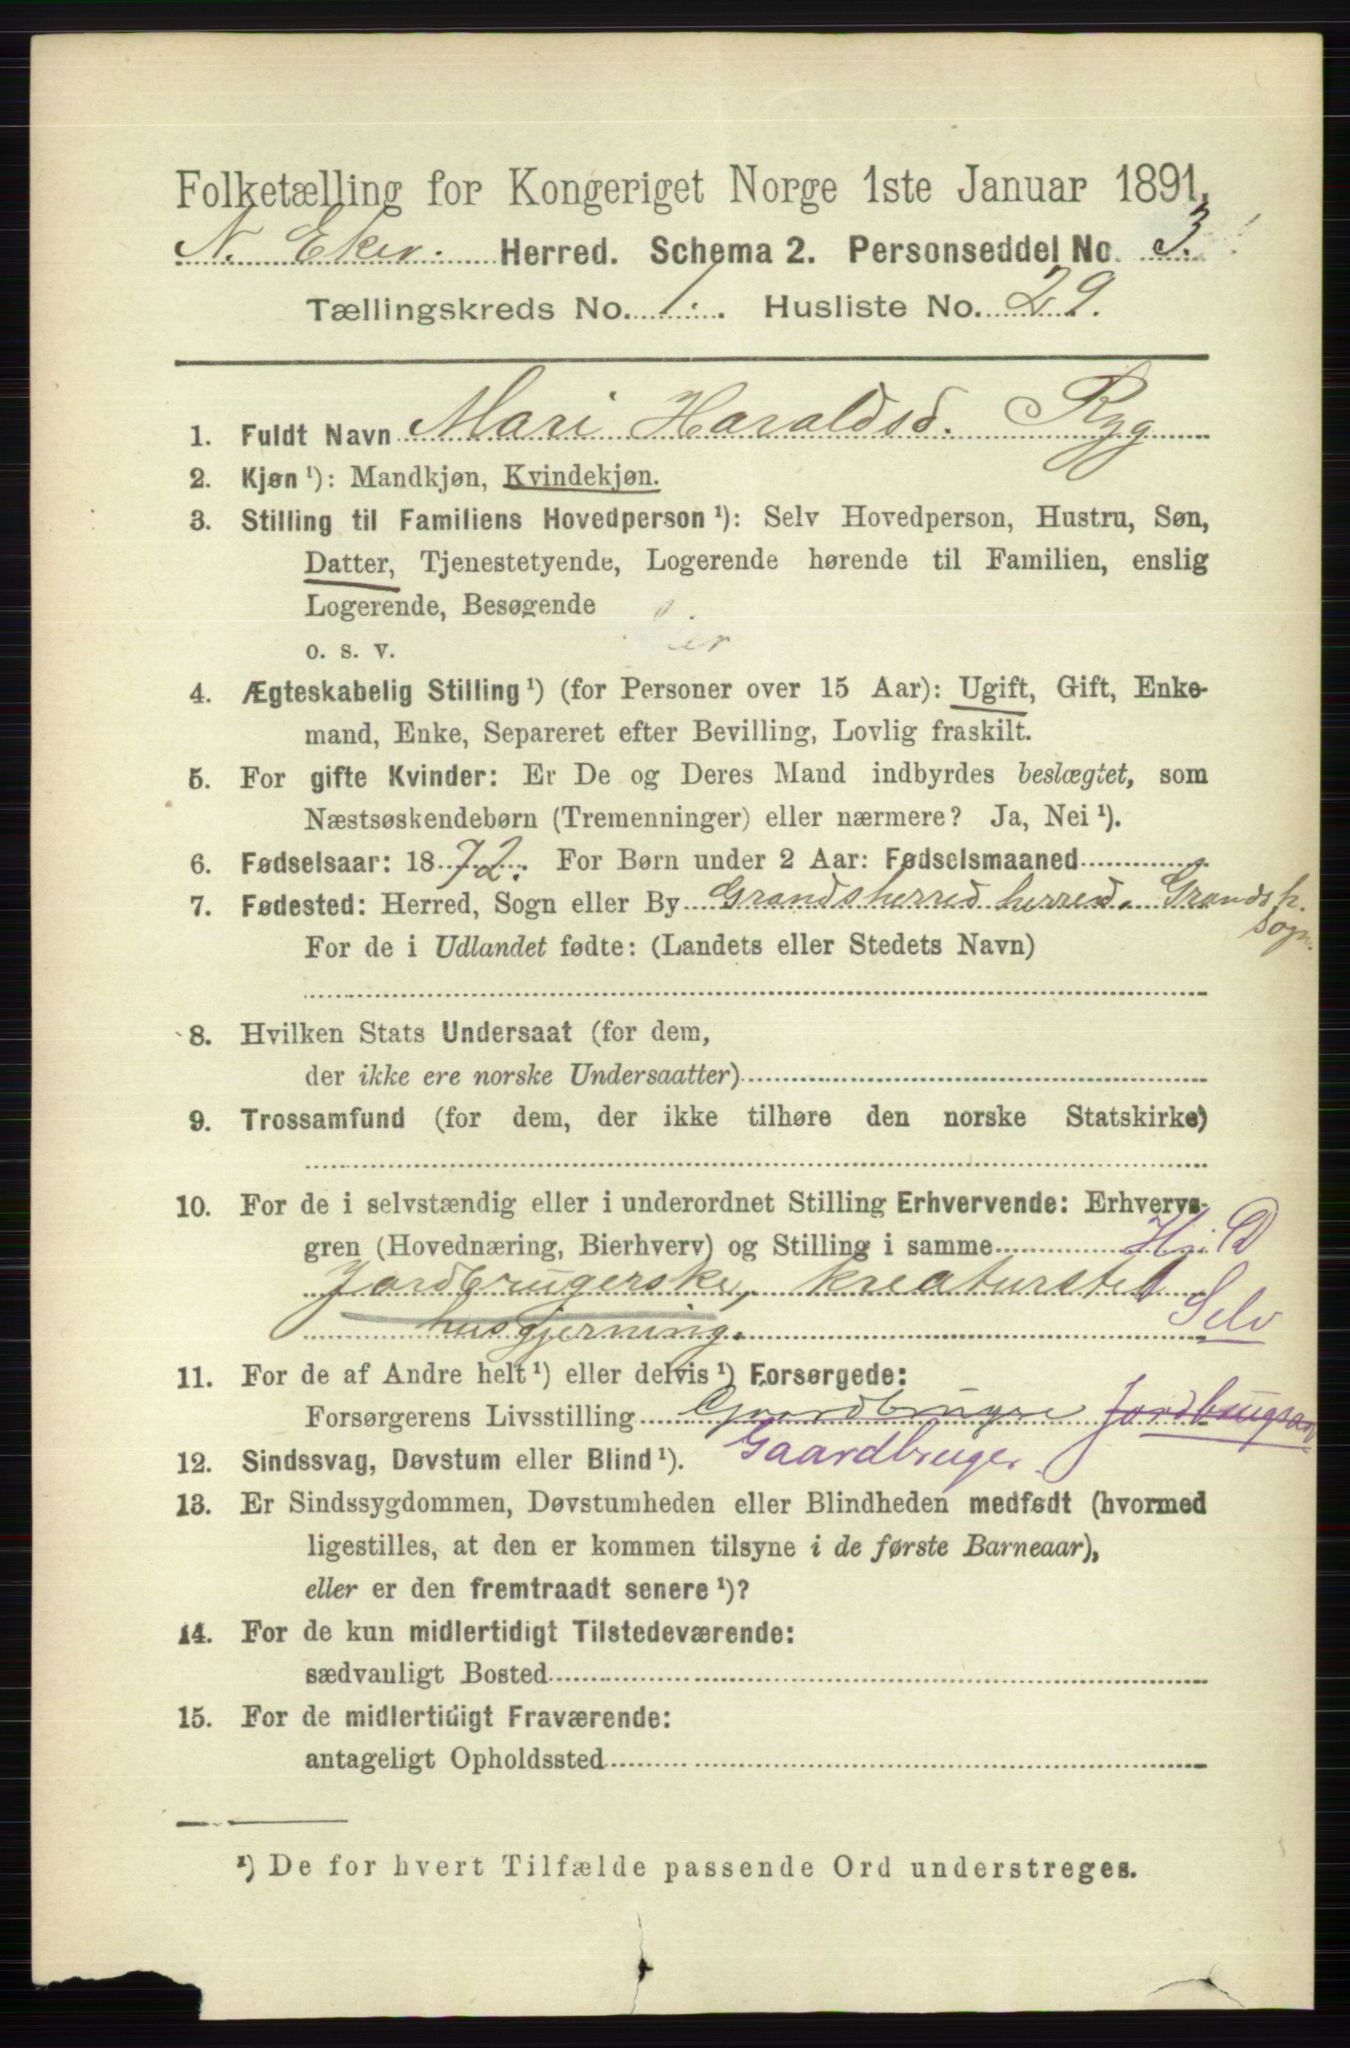 Folketælling for Kongeriget Norge 1ste Januar 1891.
N. Eker. Herred. Schema 2. Personseddel No. 3.
Tællingskreds No. 1. Husliste No. 29.
1. Fuldt Navn Mari Haraldsd. Ryg
2. Kjøn ¹): Mandkjøn, Kvindekjøn.
3. Stilling til Familiens Hovedperson ¹): Selv Hovedperson, Hustru, Søn,
Datter, Tjenestetyende, Logerende hørende til Familien, enslig
Logerende, Besøgende
o. s. v.
4. Ægteskabelig Stilling ¹) (for Personer over 15 Aar): Ugift, Gift, Enke-
mand, Enke, Separeret efter Bevilling, Lovlig fraskilt.
5. For gifte Kvinder: Er De og Deres Mand indbyrdes beslægtet, som
Næstsøskendebørn (Tremenninger) eller nærmere? Ja, Nei ¹).
6. Fødselsaar: 1872. For Børn under 2 Aar: Fødselsmaaned
7. Fødested: Herred, Sogn eller By Grandsherred herred. Grandsh.
Sogn.
For de i Udlandet fødte: (Landets eller Stedets Navn)
8. Hvilken Stats Undersaat (for dem,
der ikke ere norske Undersaatter)
9. Trossamfund (for dem, der ikke tilhøre den norske Statskirke)
10. For de i selvstændig eller i underordnet Stilling Erhvervende: Erhvervs-
gren (Hovednæring, Bierhverv) og Stilling i samme H. D
Jordbrugerske, kreaturstel
husgjerning. Selv
11. For de af Andre helt ¹) eller delvis ¹) Forsørgede:
Forsørgerens Livsstilling
Gaardbruger.
12. Sindssvag, Døvstum eller Blind ¹).
13. Er Sindssygdommen, Døvstumheden eller Blindheden medfødt (hvormed
ligestilles, at den er kommen tilsyne i de første Barneaar),
eller er den fremtraadt senere ¹)?
14. For de kun midlertidigt Tilstedeværende:
sædvanligt Bosted
15. For de midlertidigt Fraværende:
antageligt Opholdssted
¹) De for hvert Tilfælde passende Ord understreges.